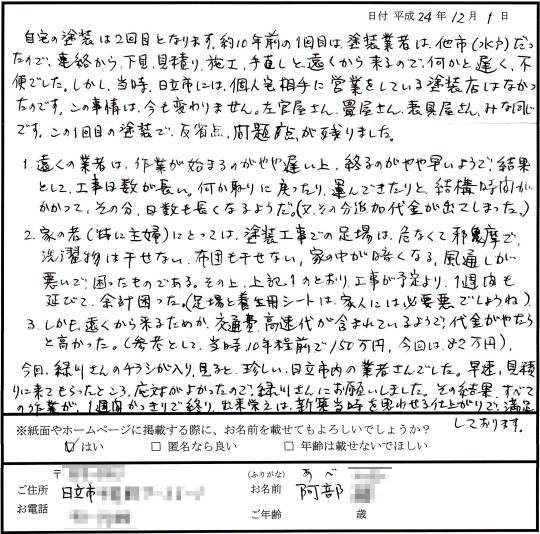 日付 平成24年12月1日
自宅の塗装は2回目となります。約10年前の1回目は、塗装業者は、他市(水戸)だっ
たので、連絡から、下見、見積り、施工、手直しと、遠くから来るので、何かと遅く、不
便でした。しかし、当時、日立市には、個人宅相手に営業をしている塗装店はなかっ
たのです。この事情は、今も変わりません。左官屋さん、畳屋さん、表具屋さん、みな同じ
です。この1回目の塗装で、反省点、問題点が残りました。
1. 遠くの業者は、作業が始まるのがやや遅い上、終るのがやや早いようで、結果
として、工事日数が長い。何か取りに戻ったり、運んできたりと、結構時間が
かかって、その分、日数も長くなるようだ。(又、その分追加代金が出てしまった。)
2. 家の者(特に主婦)にとっては、塗装工事での足場は、危なくて邪魔で、
洗濯物は干せない、布団も干せない、家の中が暗くなる、風通しが
悪いで、困ったものである。その上、上記1のとおり、工事が予定より、1週間も
延びて、余計困った。(足場と養生用シートは、家人には必要悪でしょうね)
3. しかも、遠くから来るためか、交通費、高速代が含まれているようで、代金がやたら
と高かった。(参考として、当時10年程前で150万円、今回は、82万円)
今回、緑川さんのチラシが入り、見ると、珍しい、日立市内の業者さんでした。早速、見積
りに来てもらったところ、応対がよかったので、緑川さんにお願いしました。その結果、すべて
の作業が、1週間かっきりで終り、出来栄えは、新築当時を思わせる仕上がりで、満足
しております。
※紙面やホームページに掲載する際に、お名前を載せてもよろしいでしょうか?
☑ はい □ 匿名なら良い □ 年齢は載せないでほしい
〒
ご住所 日立市
お電話
(ふりがな) あべ
お名前 阿部
ご年齢 歳